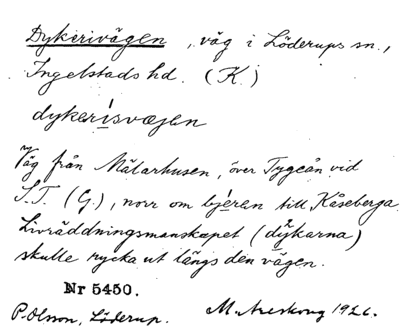 Dykerivägen, väg i Löderups sn.,
Ingelstads hd. (K.)
dykerisvægen
Väg från Mälarhusen, över Tygeån vid
S.T. (G.), norr om bjeren till Kåseberga.
Livräddningsmanskapet (dykarna)
skulle rycka ut längs den vägen.
Nr 5450.
P. Olsson, Löderup. M. Areskoug 1926.